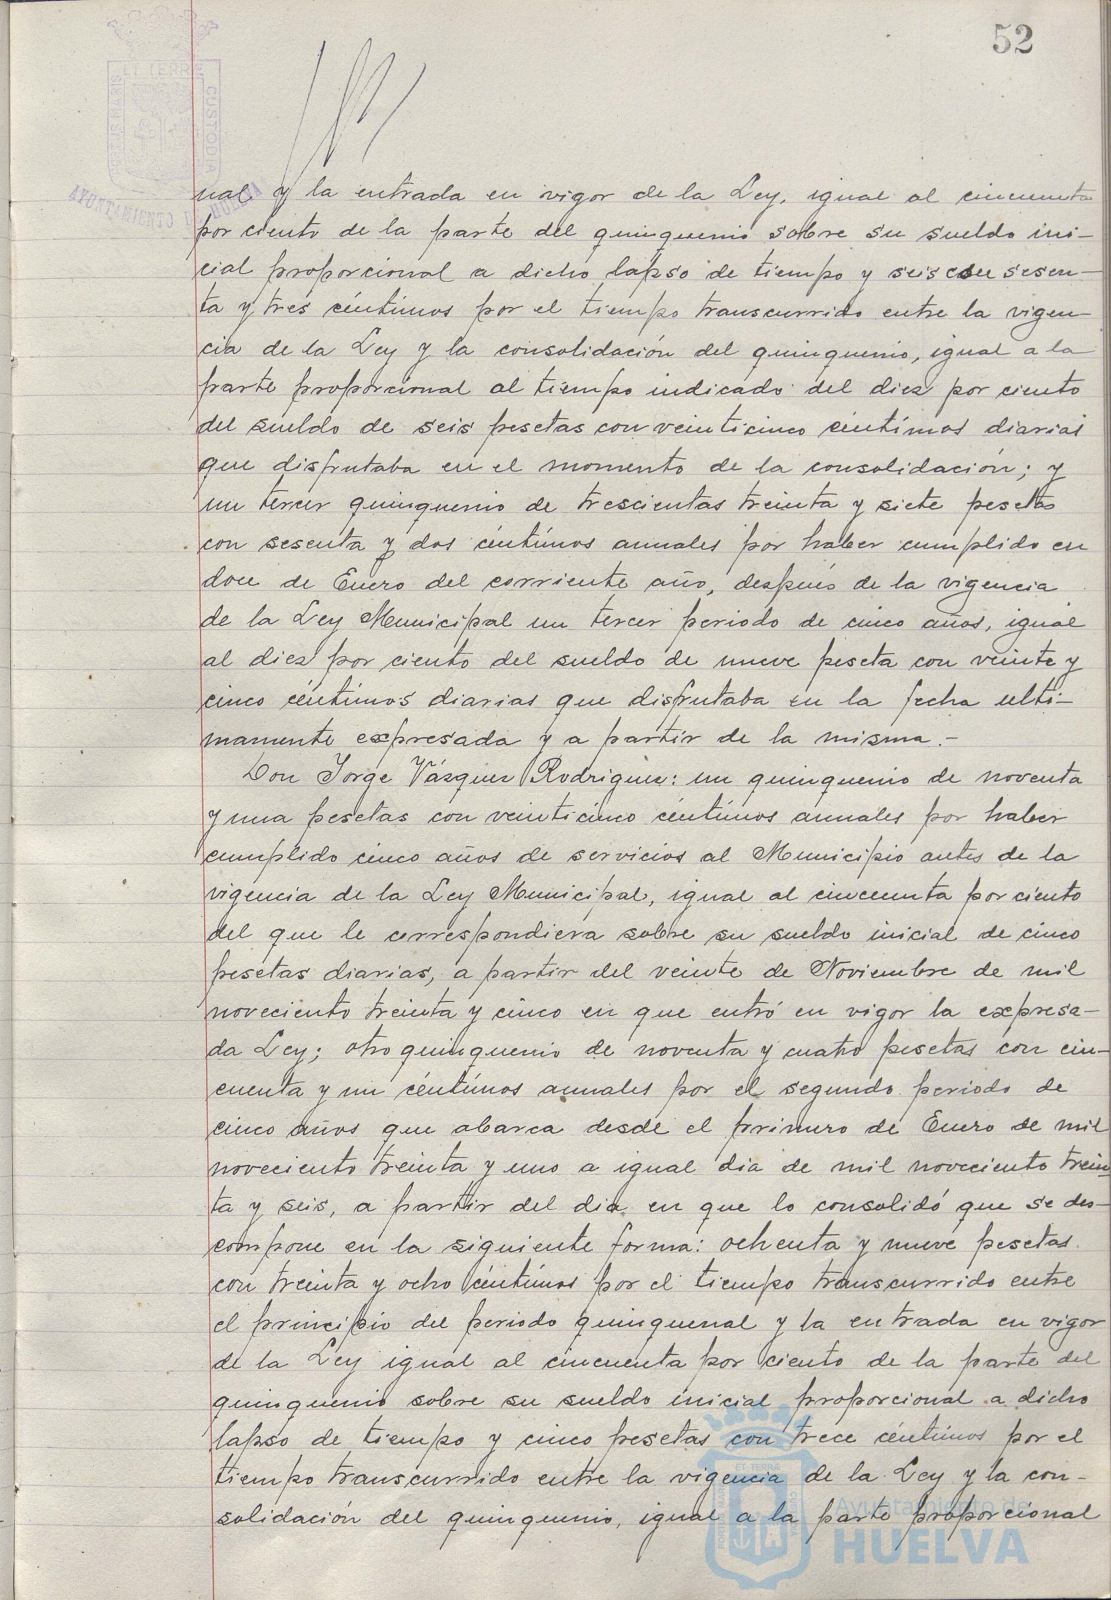 52
nal y la entrada en vigor de la Ley, igual al cincuenta
por ciento de la parte del quinquenio sobre su sueldo ini-
cial proporcional a dicho lapso de tiempo y seis con sesen-
ta y tres céntimos por el tiempo transcurrido entre la vigen-
cia de la Ley y la consolidación del quinquenio, igual a la
parte proporcional al tiempo indicado del diez por ciento
del sueldo de seis pesetas con veinticinco céntimos diarias
que disfrutaba en el momento de la consolidación; y
un tercer quinquenio de trescientas treinta y siete pesetas
con sesenta y dos céntimos anuales por haber cumplido en
doce de Enero del corriente año, después de la vigencia
de la Ley Municipal un tercer periodo de cinco años, igual
al diez por ciento del sueldo de nueve peseta con veinte y
cinco céntimos diarias que disfrutaba en la fecha ulti-
mamente expresada y a partir de la misma.-
Don Jorge Vázquez Rodriguez: un quinquenio de noventa
y una pesetas con veinticinco céntimos anuales por haber
cumplido cinco años de servicios al Municipio antes de la
vigencia de la Ley Municipal, igual al cincuenta por ciento
del que le correspondiera sobre su sueldo inicial de cinco
pesetas diarias, a partir del veinte de Noviembre de mil
noveciento treinta y cinco en que entró en vigor la expresa-
da Ley; otro quinquenio de noventa y cuatro pesetas con cin-
cuenta y un céntimos anuales por el segundo periodo de
cinco años que abarca desde el primero de Enero de mil
noveciento treinta y uno a igual dia de mil noveciento trein-
ta y seis, a partir del dia en que lo consolidó que se des-
compone en la siguiente forma: ochenta y nueve pesetas
con treinta y ocho céntimos por el tiempo transcurrido entre
el principio del periodo quinquenal y la entrada en vigor
de la Ley igual al cincuenta por ciento de la parte del
quinquenio sobre su sueldo inicial proporcional a dicho
lapso de tiempo y cinco pesetas con trece céntimos por el
tiempo transcurrido entre la vigencia de la Ley y la con-
solidación del quinquenio, igual a la parte proporcional
Ayuntamiento de
HUELVA